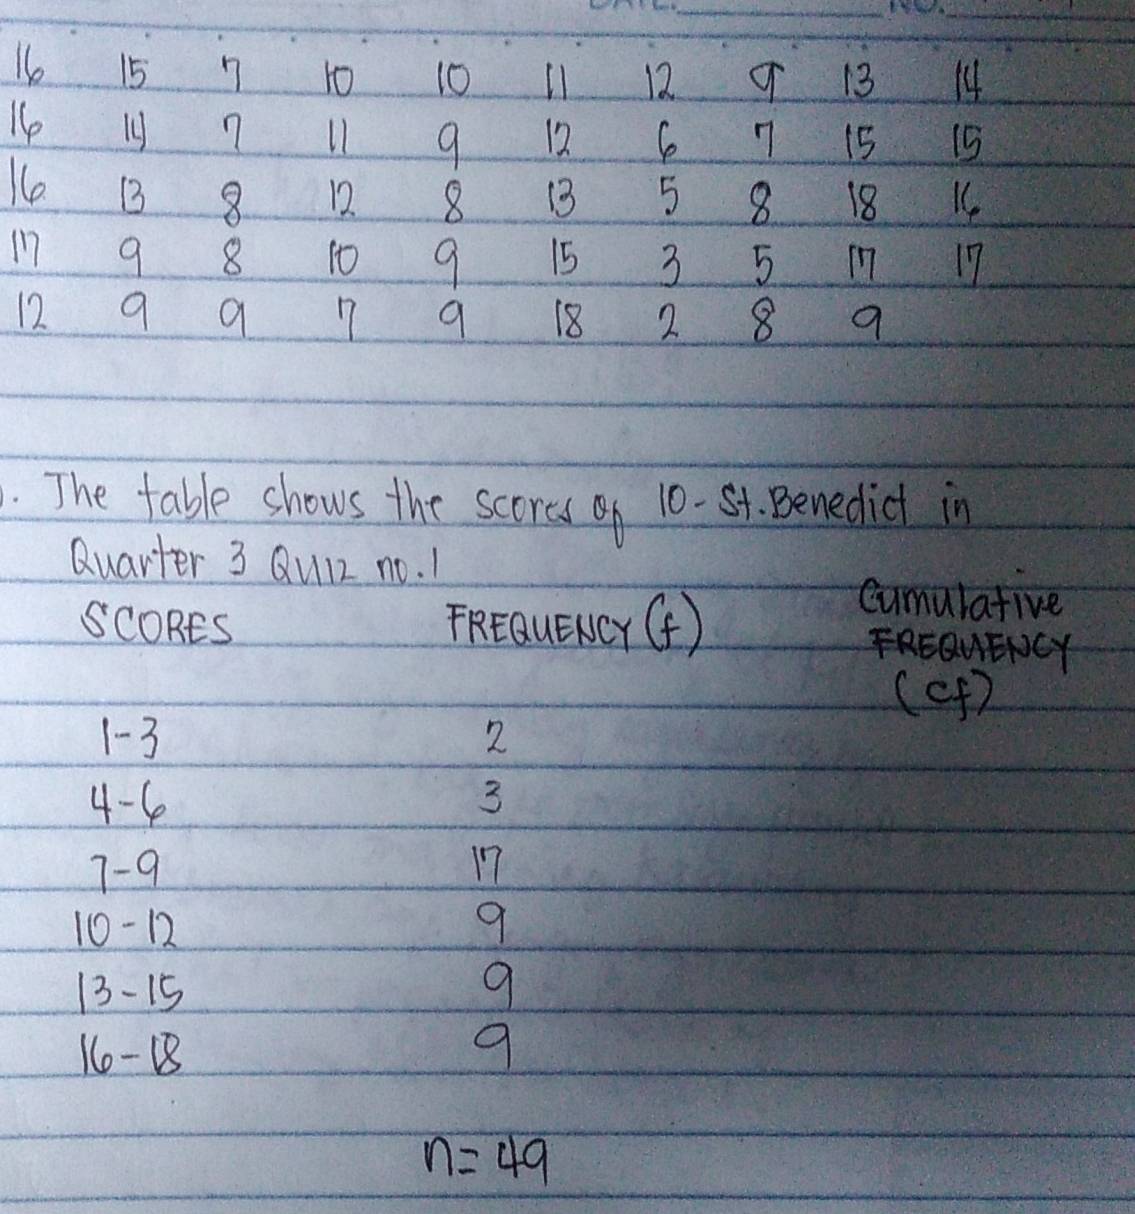 16 15 7 10 10 11 12 9 13 14
16 14 7 11 9 12 6 7 15 15
16 13 8 12 8 13 5 8 18 16
17 9 8 10 9 15 3 5 17 17
12 9 9 7 9 18 2 8 9
. The table shows the scores of 10-St. Benedict in
Quarter 3 Quiz no. 1
SCORES FREQUENCY (f) Cumulative FREQUENCY (cf)
1-3 2
4-6 3
7-9 17
10-12 9
13-15 9
16-18 9
n = 49